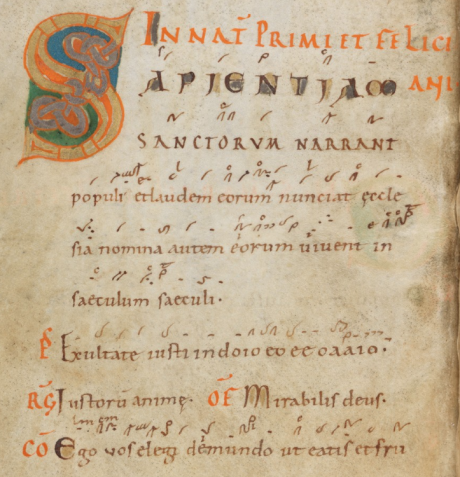 IN NAT PRIMI ET FELICI
SAPIENTIAM ANI
SANCTORUM NARRANT
populi et laudem eorum nunciat eccle
sia nomina autem eorum vivent in
saeculum saeculi.
PS Exultate iusti in dn̄o
RG Iustorū animę. OF Mirabilis deus.
CO Ego vos elegi de mundo ut eatis et fru